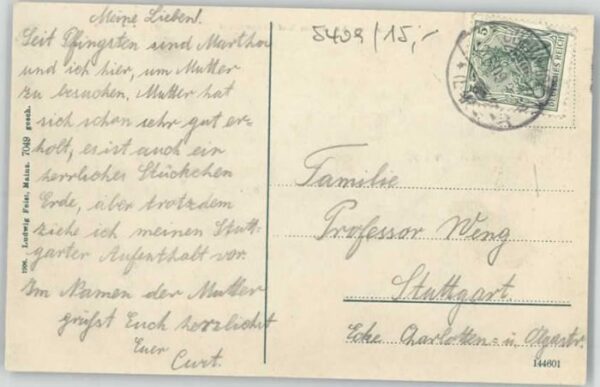 Meine Lieben!
Seit Pfingsten sind Martha
und ich hier, um Mutter
zu besuchen. Mutter hat
sich schon sehr gut er-
holt, es ist auch ein
herrliches Stückchen
Erde, aber trotzdem
ziehe ich meinen Stutt-
garter Aufenthalt vor.
Im Namen der Mutter
grüßt Euch herzlichst
Euer
Curt.
5409/15,-
5
DEUTSCHES REICH
Familie
Professor Weng
Stuttgart.
Ecke Charlotten- u. Olgastr.
144601
1906. Ludwig Feist, Mainz. 7049 gesch.